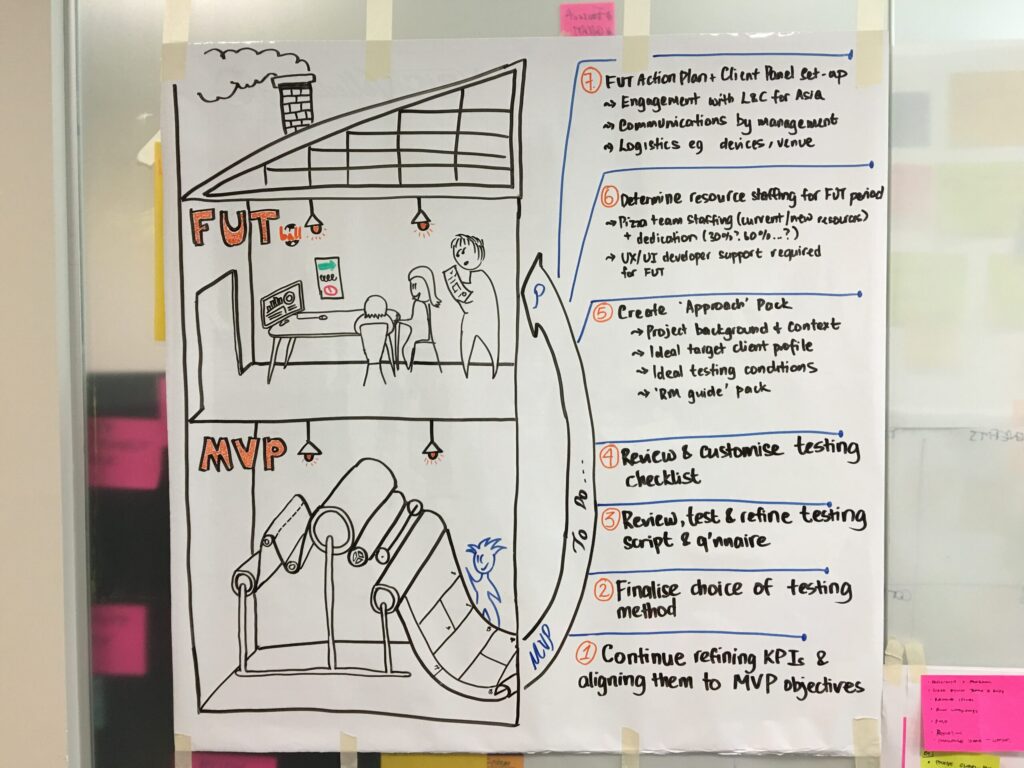 FUT
MVP
MVP
TO DO...
⑦ FUT Action Plan + Client Panel Set-up
→ Engagement with L&C for Asia
→ Communications by management
→ Logistics eg devices, venue
⑥ Determine resource staffing for FUT period
→ Pizza team staffing (current/new resources)
+ dedication (30%?, 60%...?)
→ UX/UI developer support required
for FUT
⑤ Create 'Approach' Pack
→ Project background & context
→ Ideal target client profile
→ Ideal testing conditions
→ 'RM guide' pack
④ Review & customise testing
checklist
③ Review, test & refine testing
script & q'nnaire
② Finalise choice of testing
method
① Continue refining KPIs &
aligning them to MVP objectives